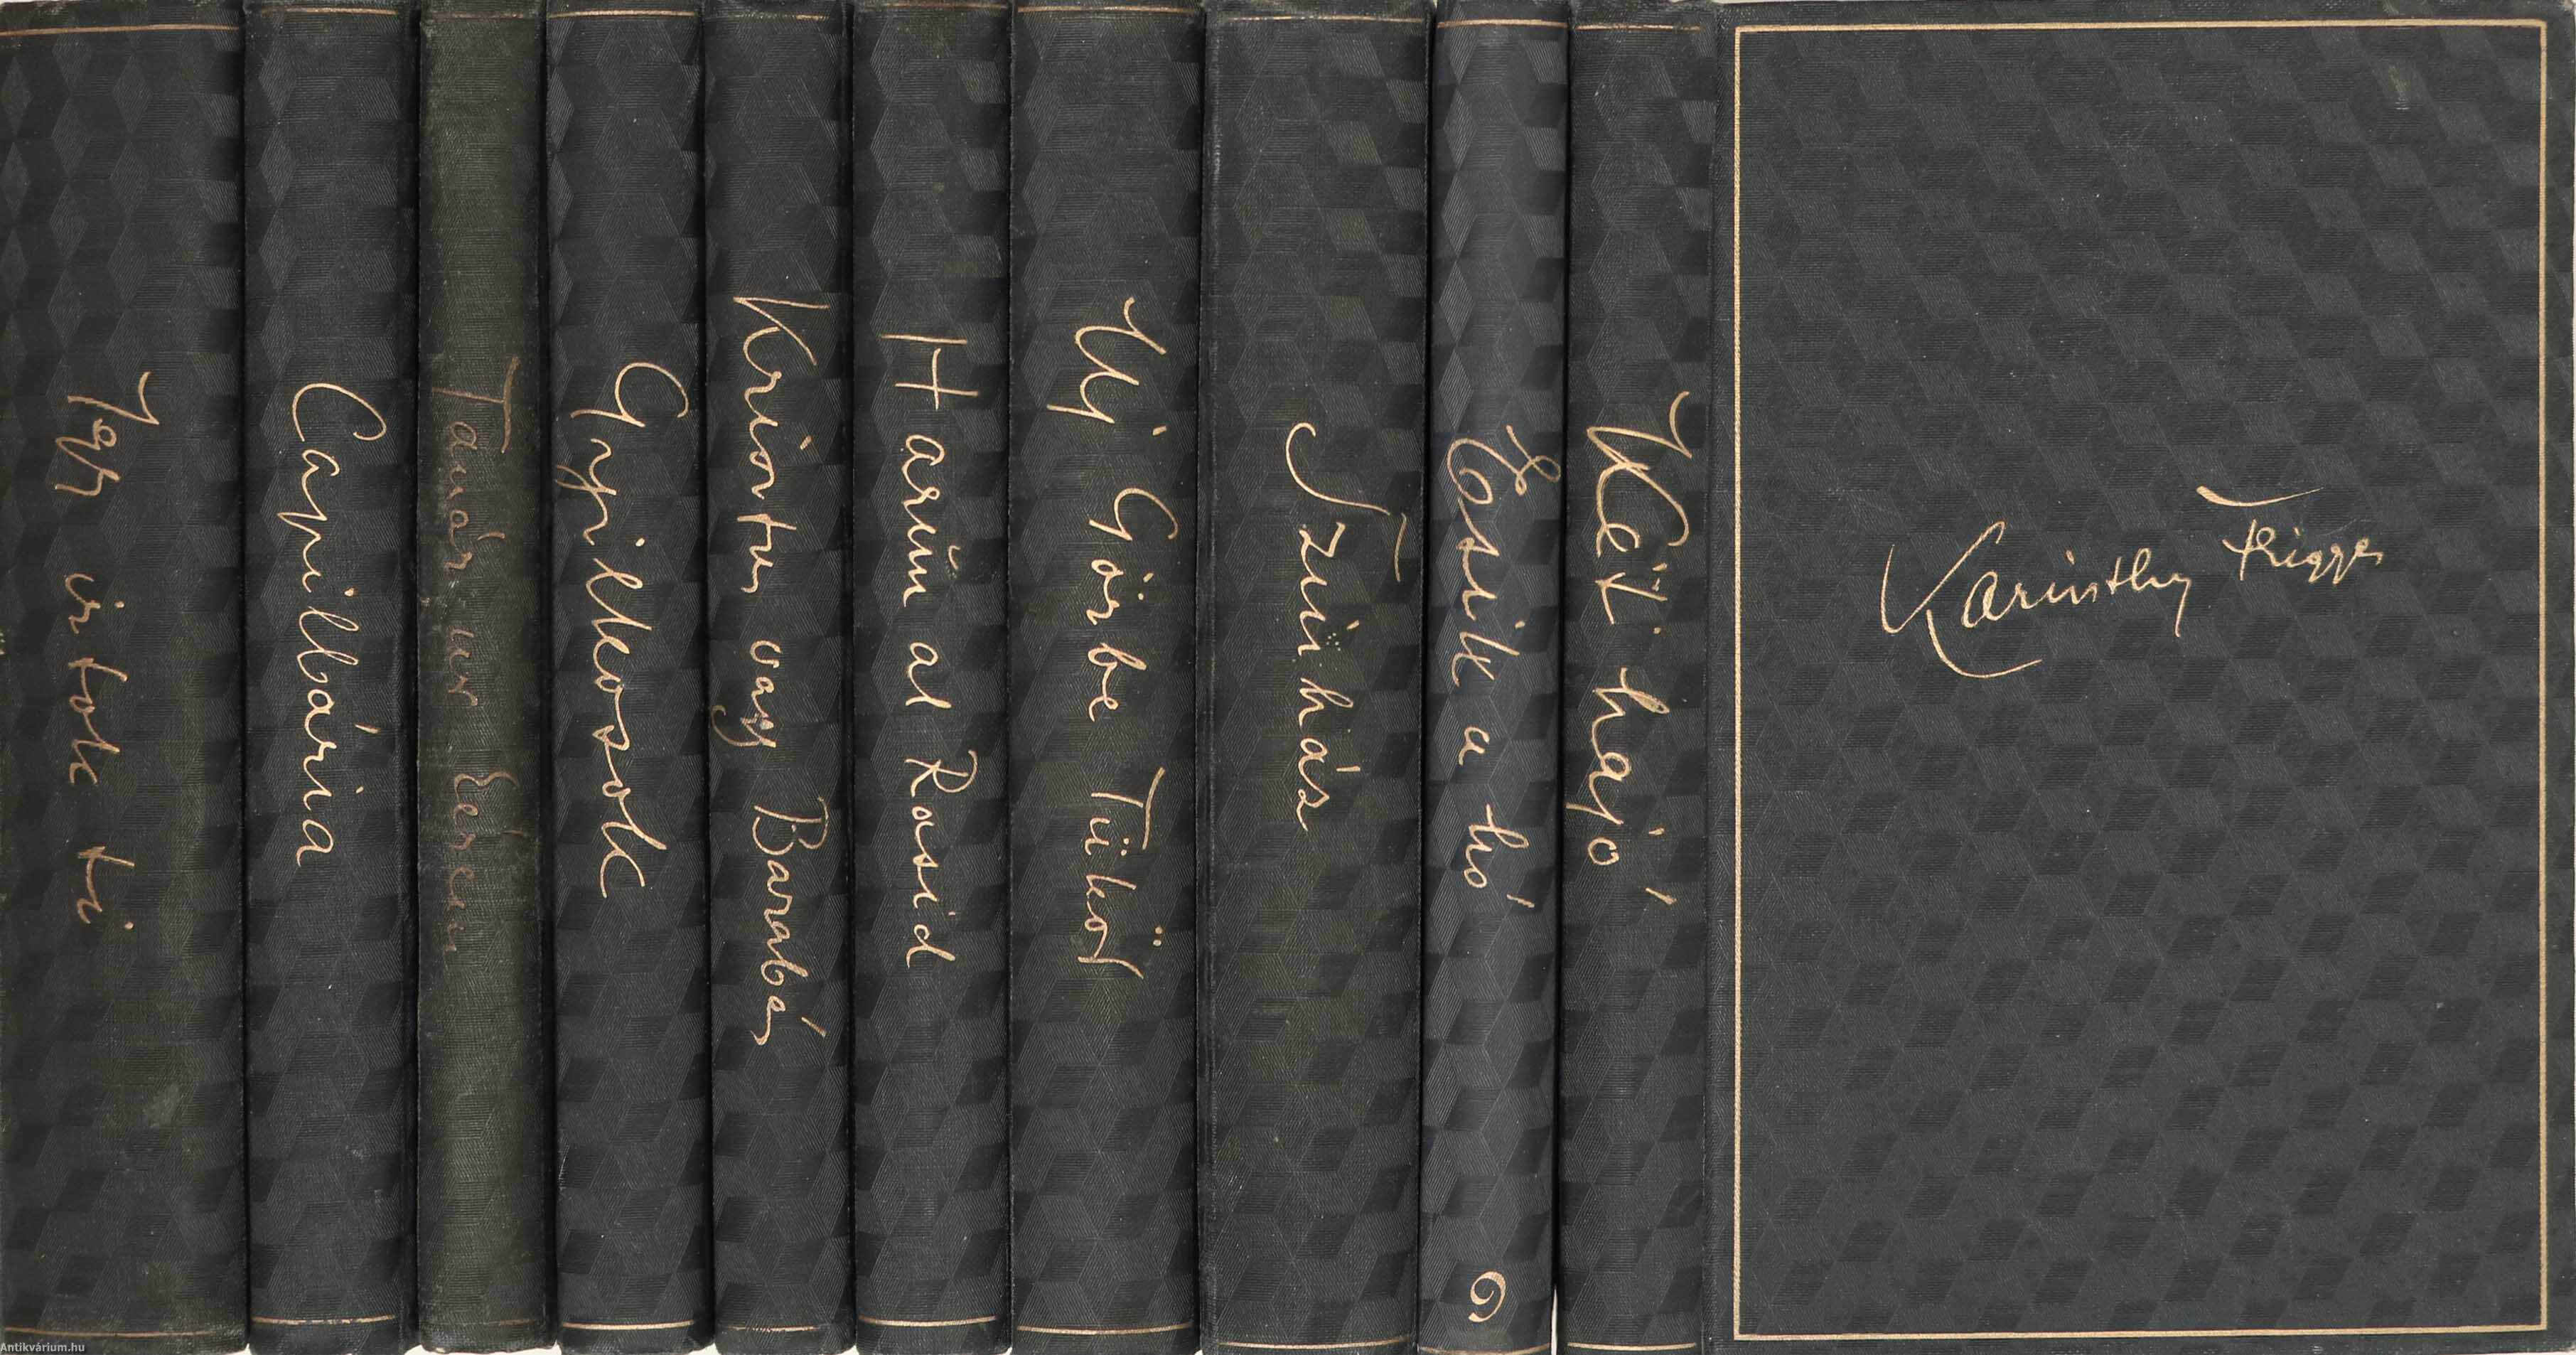 Igy irtok ti
Capillária
Tanár úr kérem
Gyilkosok
Krisztus vagy Barabás
Harún al Rasid
Uj Görbe Tükör
Szinház
Esik a hó
6
Két hajó
Karinthy Frigyes
Antikvárium.hu